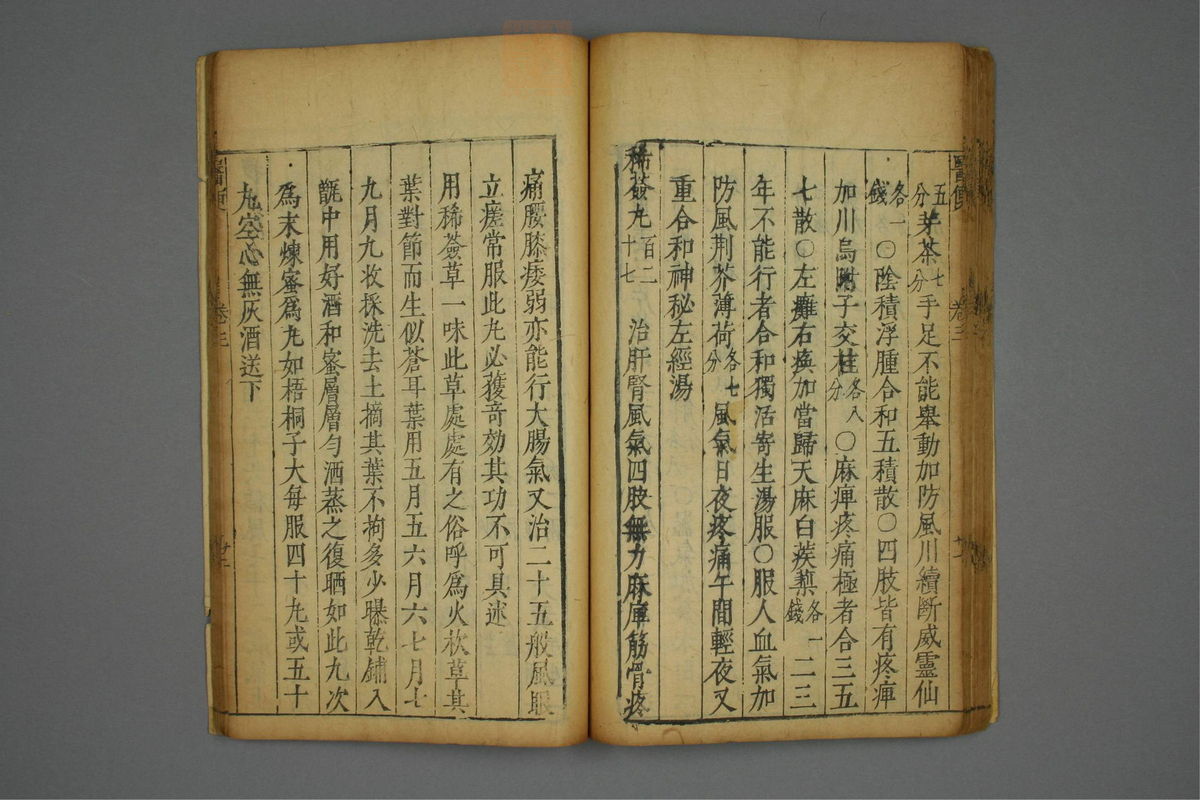 醫便 卷三
五分芽茶七分手足不能舉動加防風川續斷威靈仙
各一錢〇陰積浮腫合和五積散〇四肢皆有疼痺
加川烏附子交桂各八分〇麻痺疼痛極者合三五
七散〇左攤右瘓加當歸天麻白蒺藜各一錢二三
年不能行者合和獨活寄生湯服〇服人血氣加
防風荆芥薄荷各七分風氣日夜疼痛午間輕夜又
重合和神秘左經湯
稀薟丸百二十七 治肝腎風氣四肢無力麻痺筋骨疼
痛腰膝痿弱亦能行大腸氣又治二十五般風眼
立瘥常服此丸必獲竒効其功不可具述
用稀薟草一味此草處處有之俗呼爲火杴草其
葉對節而生似蒼耳葉用五月五六月六七月七
九月九收採洗去土摘其葉不拘多少曝乾鋪入
甑中用好酒和蜜層層勻洒蒸之復晒如此九次
爲末煉蜜爲丸如梧桐子大每服四十丸或五十
丸空心無灰酒送下
醫便 卷三